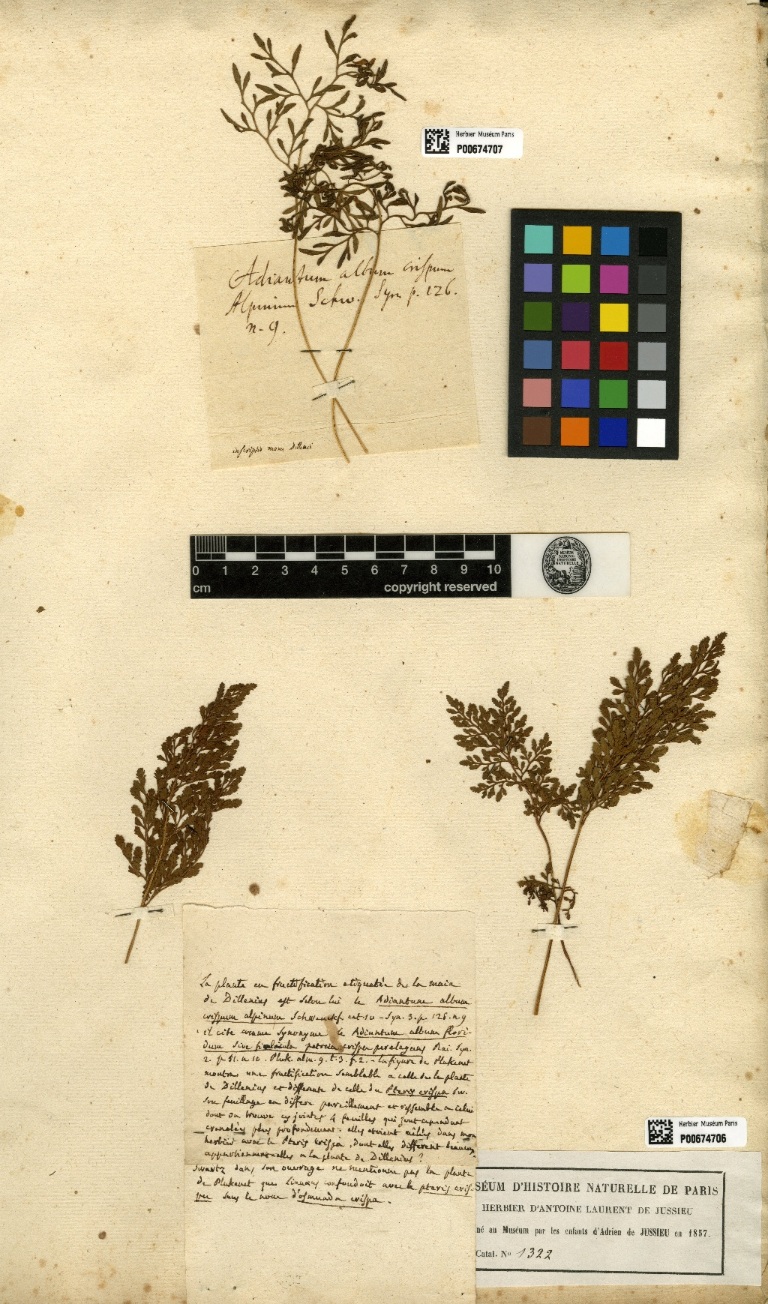 Herbier Muséum Paris
P00674707
Adiantum album crispum
Alpinum Schw. Syn p. 126.
n. 9.
0 1 2 3 4 5 6 7 8 9 10
cm copyright reserved
La plante en fructification etiquetée de la main
de Dillenius est selon lui le Adiantum album
crispum alpinum
il cite comme synonyme le Adiantum album flori-
dum sive
La figure de Plukenet
montre une fructification semblable a celle de la plante
de Dillenius et differente de celle du Pteris crispa Sw.
son feuillage en differe pareillement et ressemble a celui
dont on trouve cy jointes 4 feuilles qui sont cependant
plus profondement. elles etoient mêlées dans mon
herbier avec le Pteris crispa, dont elles different beaucoup
appartiennent-elles a la plante de Dillenius?
Swartz dans son ouvrage ne mentionne pas la plante
de Plukenet que Linnaeus confondoit avec le pteris cris-
pa sous le nom d'osmunda crispa.
Herbier Muséum Paris
P00674706
SÉUM D'HISTOIRE NATURELLE DE PARIS
HERBIER D'ANTOINE LAURENT DE JUSSIEU
né au Muséum par les enfants d'Adrien de JUSSIEU en 1857.
Catal. No 1322